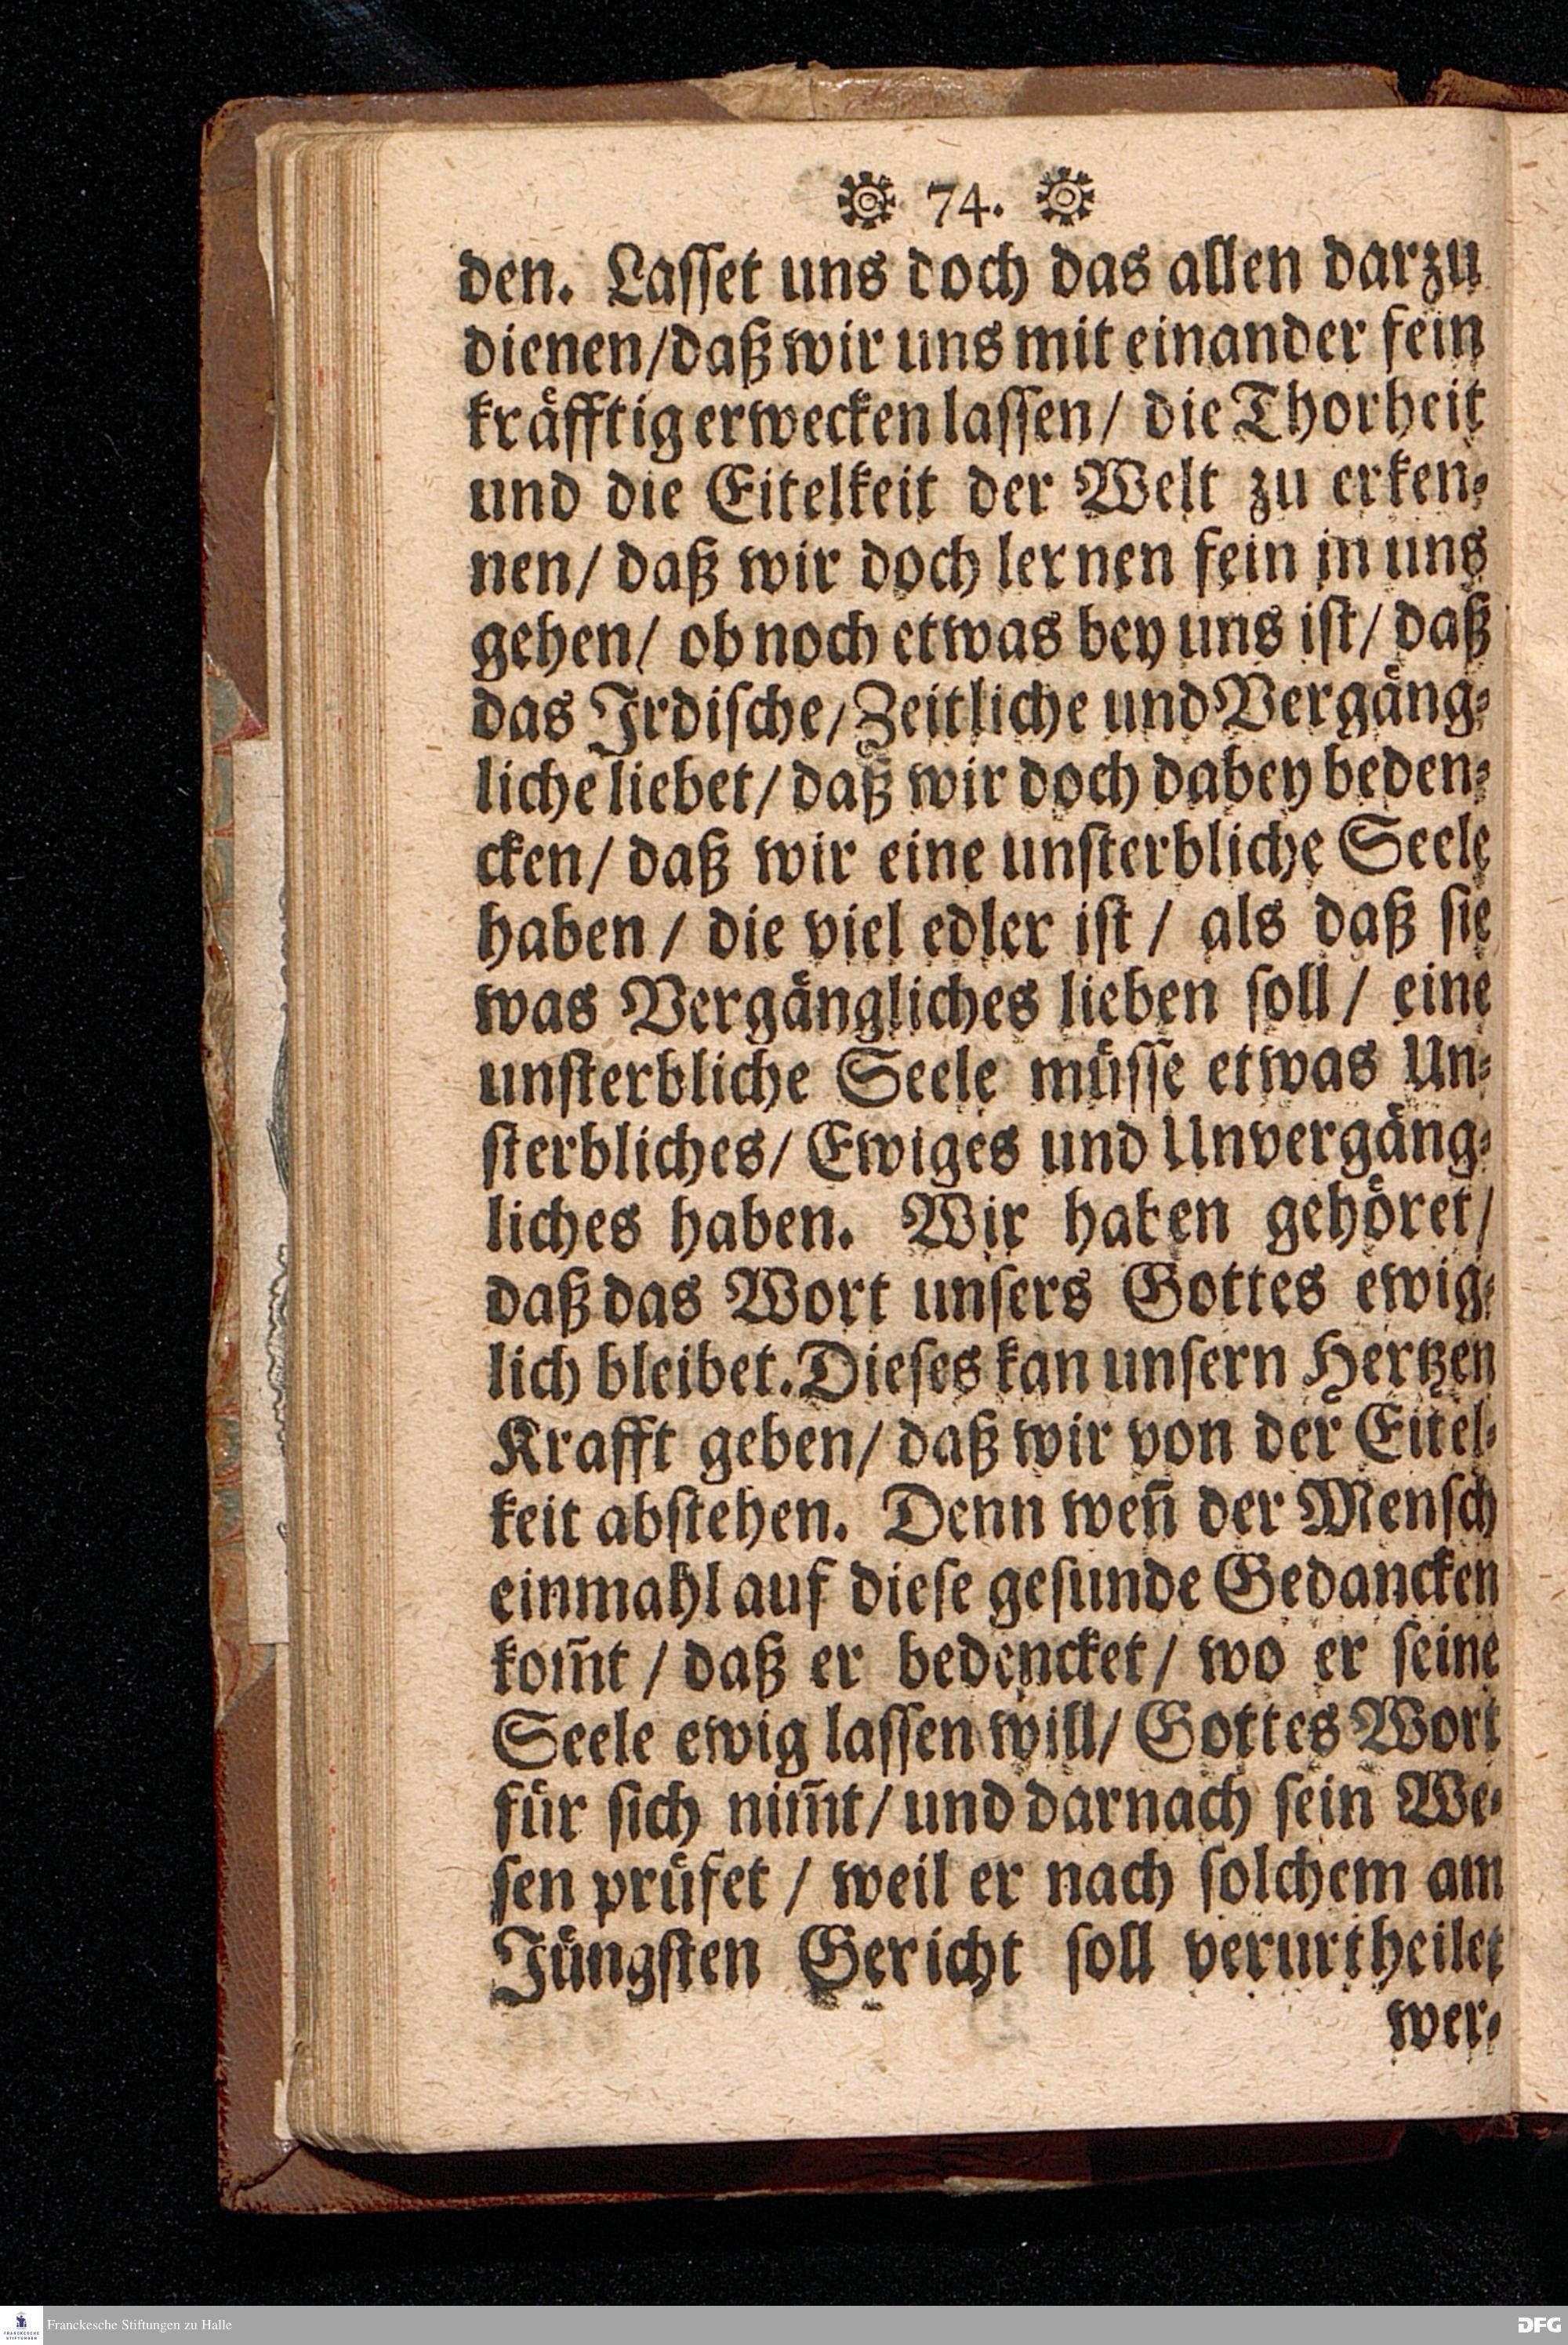 74.
den. Lasset uns doch das allen darzu
dienen/daß wir uns mit einander fein
kräfftig erwecken lassen/ die Thorheit
und die Eitelkeit der Welt zu erken-
nen/ daß wir doch lernen fein in uns
gehen/ ob noch etwas bey uns ist/ daß
das Irdische/Zeitliche und Vergäng-
liche liebet/ daß wir doch dabey beden-
cken/ daß wir eine unsterbliche Seele
haben / die viel edler ist / als daß sie
was Vergängliches lieben soll/ eine
unsterbliche Seele müsse etwas Un-
sterbliches/ Ewiges und Unvergäng-
liches haben. Wir haben gehöret/
daß das Wort unsers Gottes ewig-
lich bleibet. Dieses kan unsern Hertzen
Krafft geben/ daß wir von der Eitel-
keit abstehen. Denn weñ der Mensch
einmahl auf diese gesunde Gedancken
kom̃t / daß er bedencket/ wo er seine
Seele ewig lassen will/ Gottes Wort
für sich nim̃t/ und darnach sein We-
sen prüfet / weil er nach solchem am
Jüngsten Gericht soll verurtheilet
wer-
FRANCKESCHE
STIFTUNGEN
Franckesche Stiftungen zu Halle
DFG